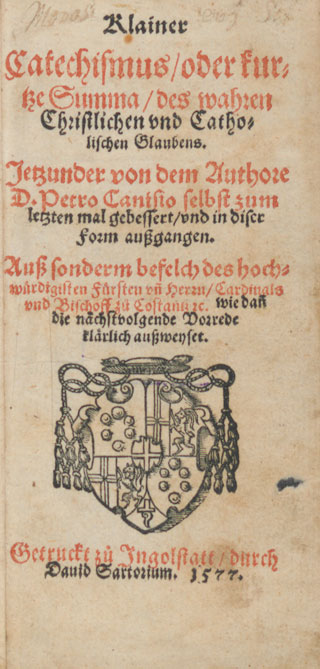 Klainer
Catechismus/oder kur-
tze Summa/des wahren
Christlichen vnd Catho-
lischen Glaubens.
Jetzunder von dem Authore
D. Petro Canisio selbst zum
letzten mal gebessert/vnd in diser
Form außgangen.
Auß sonderm befelch des hoch-
würdigisten Fürsten vñ Herrn/Cardinals
vnd Bischoff zů Costantz ꝛc. wie dañ
die nächstvolgende Vorrede
klärlich außweyset.
Getruckt zů Ingolstatt/durch
Dauid Sartorium. 1577.